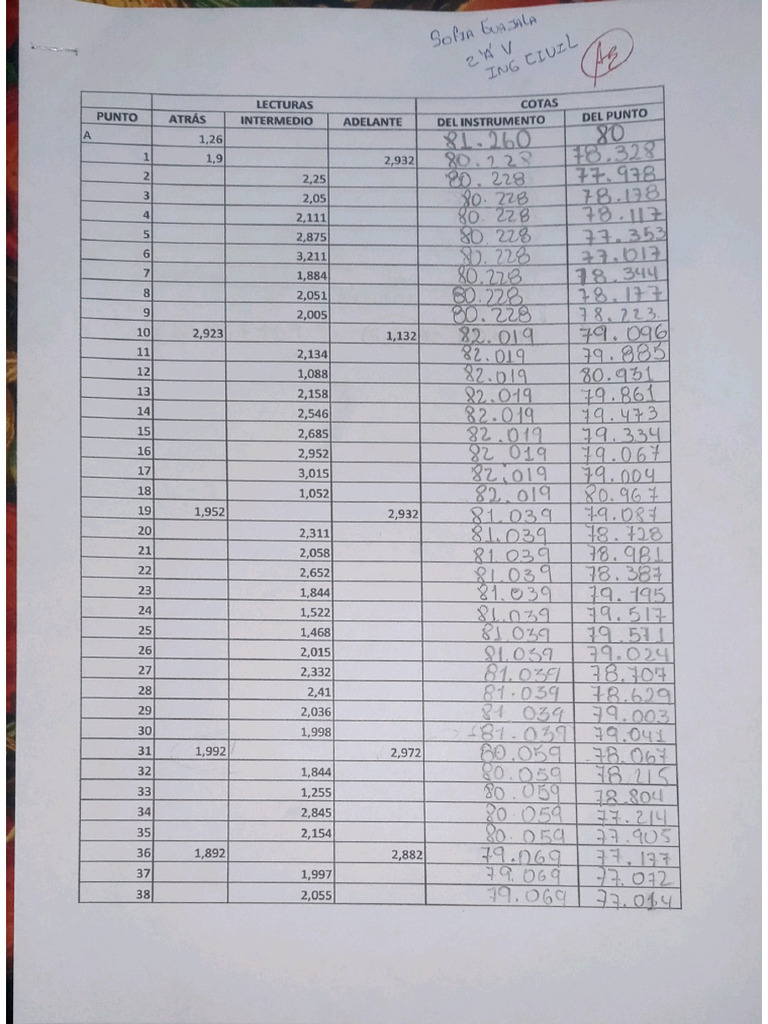 SOFIA GUAJALA
2 "A" V
ING CIVIL
LECTURAS COTAS
PUNTO ATRÁS INTERMEDIO ADELANTE DEL INSTRUMENTO DEL PUNTO
A 1,26 81.260 80
1 1,9 2,932 80.228 78.328
2 2,25 80.228 77.978
3 2,05 80.228 78.178
4 2,111 80.228 78.117
5 2,875 80.228 77.353
6 3,211 80.228 77.017
7 1,884 80.228 78.344
8 2,051 80.228 78.177
9 2,005 80.228 78.223
10 2,923 1,132 82.019 79.096
11 2,134 82.019 79.885
12 1,088 82.019 80.931
13 2,158 82.019 79.861
14 2,546 82.019 79.473
15 2,685 82.019 79.334
16 2,952 82 019 79.067
17 3,015 82.019 79.004
18 1,052 82.019 80.967
19 1,952 2,932 81.039 79.087
20 2,311 81.039 78.728
21 2,058 81 039 78.981
22 2,652 81.039 78.387
23 1,844 81.039 79.195
24 1,522 81.039 79.517
25 1,468 81.039 79.571
26 2,015 81.039 79.024
27 2,332 81.039 78.707
28 2,41 81.039 78.629
29 2,036 81 039 79.003
30 1,998 81.039 79.041
31 1,992 2,972 80.059 78.067
32 1,844 80.059 78.215
33 1,255 80.059 78.804
34 2,845 80 059 77.214
35 2,154 80.059 77.905
36 1,892 2,882 79.069 77.177
37 1,997 79.069 77.072
38 2,055 79.069 77.014